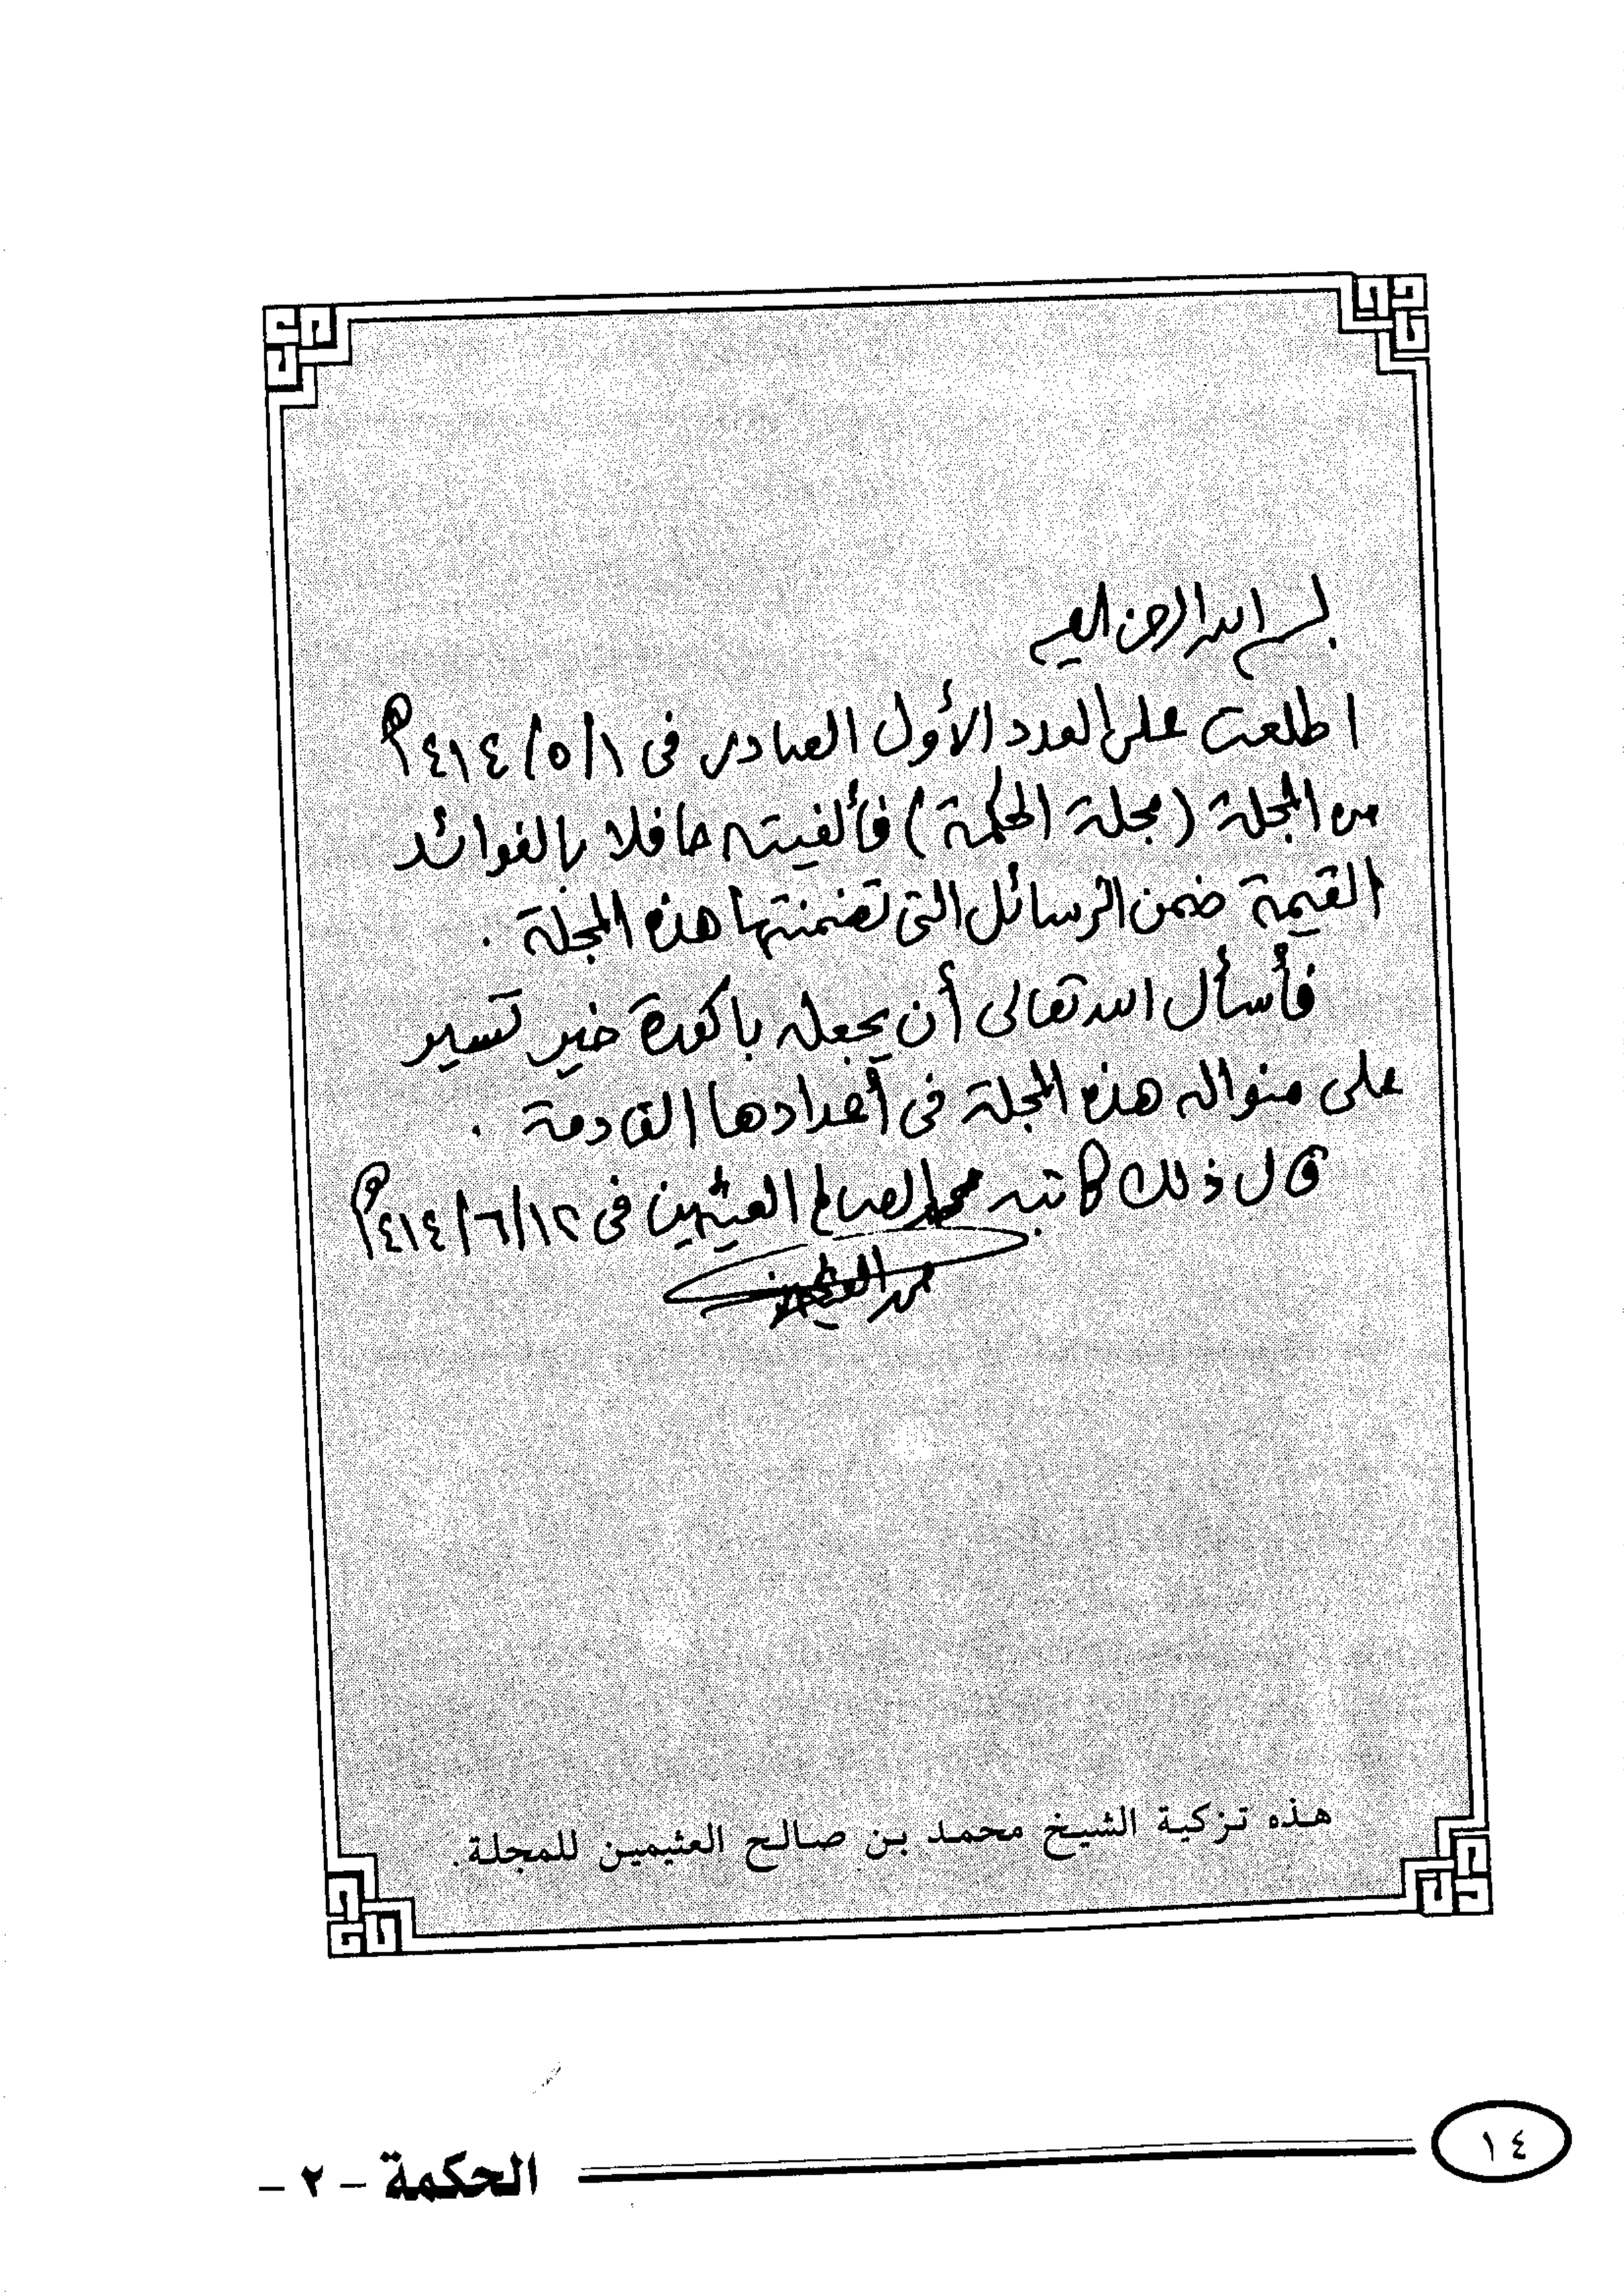 بسم الله الرحمن الرحيم
اطلعت على العدد الأول الصادر في ١/٥/١٤١٤هـ
من المجلة (مجلة الحكمة) فألفيته حافلا بالفوائد
القيمة ضمن الرسائل التي تضمنتها هذه المجلة .
فأسأل الله تعالى أن يجعله باكورة خير تسير
على منواله هذه المجلة في أعدادها القادمة .
قال ذلك كاتبه محمد الصالح العثيمين في ١٢/٦/١٤١٤هـ
محمد العثيمين
هذه تزكية الشيخ محمد بن صالح العثيمين للمجلة.
١٤
الحكمة - ٢ -